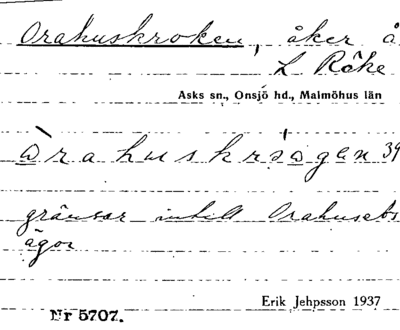 Orahuskroken, åker å
L Röke
Asks sn., Onsjö hd., Malmöhus län
gränsar intill Orahusets
ägor
Erik Jehpsson 1937
Nr 5707.